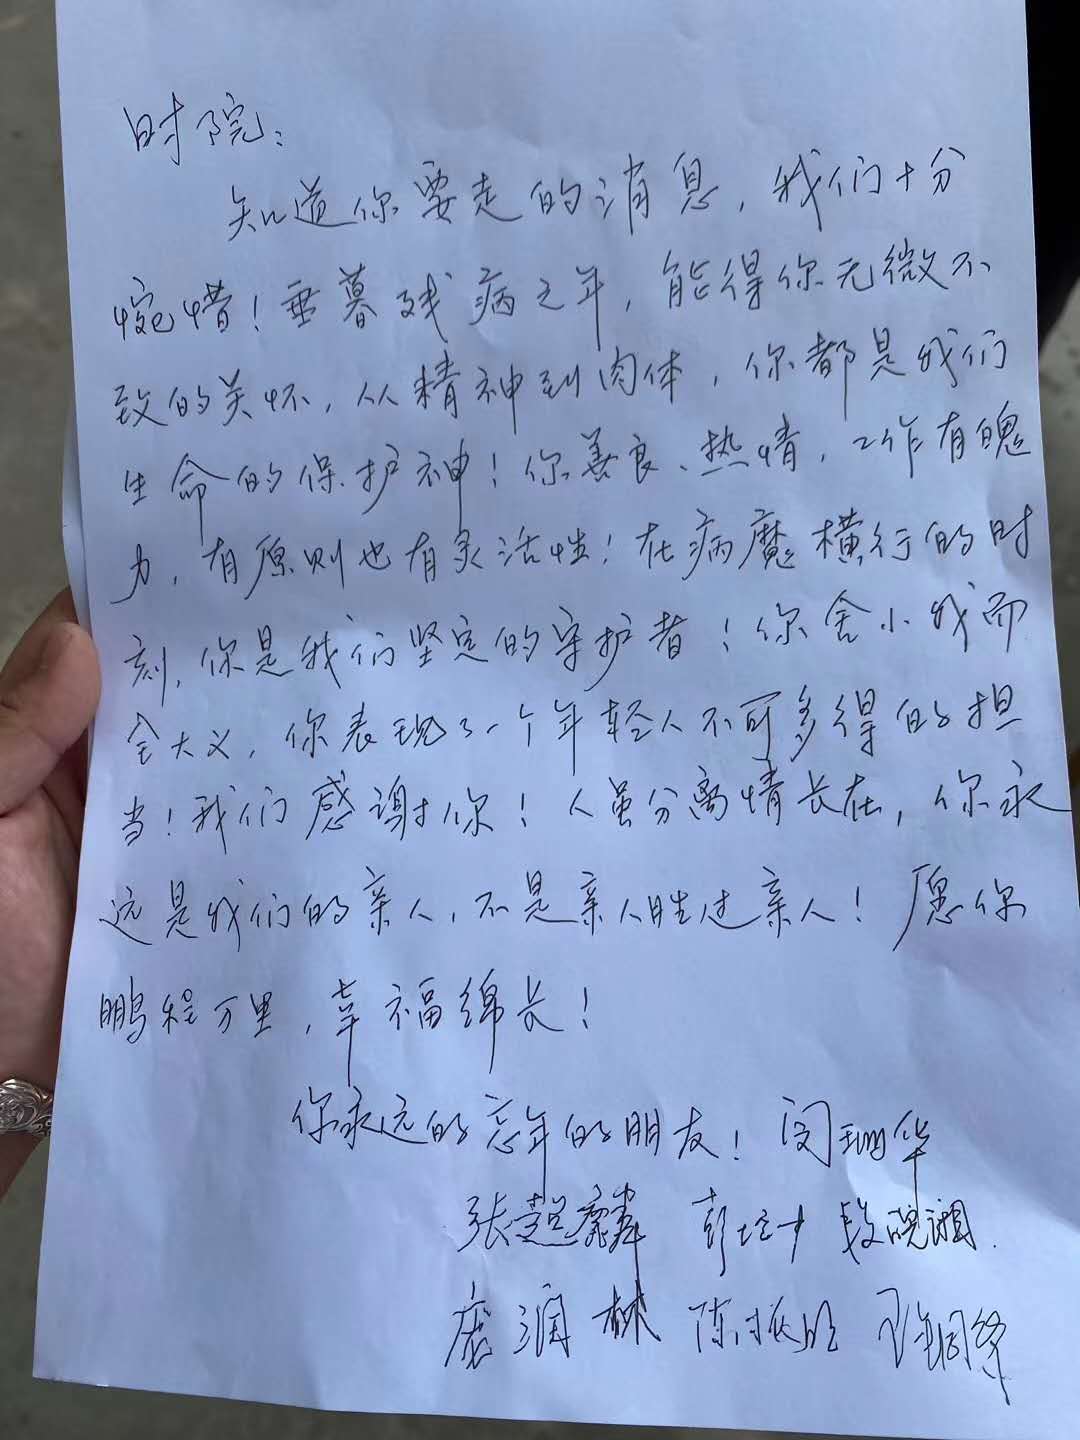 时院：
知道你要走的消息，我们十分
惋惜！垂暮残病之年，能得你无微不
致的关怀，从精神到肉体，你都是我们
生命的保护神！你善良、热情，工作有魄
力，有原则也有灵活性！在病魔横行的时
刻，你是我们坚定的守护者！你舍小我而
全大义，你表现了一个年轻人不可多得的担
当！我们感谢你！人虽分离情长在，你永
远是我们的亲人，不是亲人胜过亲人！愿你
鹏程万里，幸福绵长！
你永远的忘年的朋友！闵珊华
张超麟 彭 段晓湘
唐润林 陈振